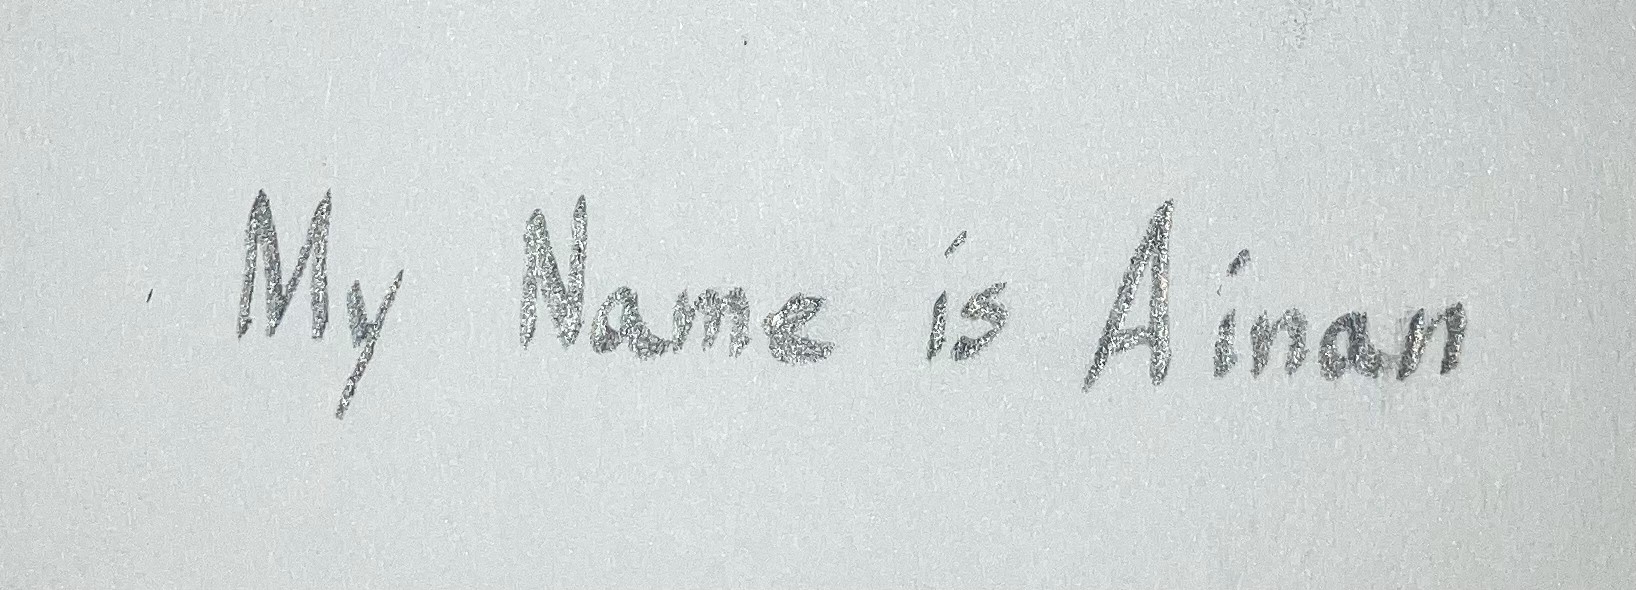 My Name is Ainan